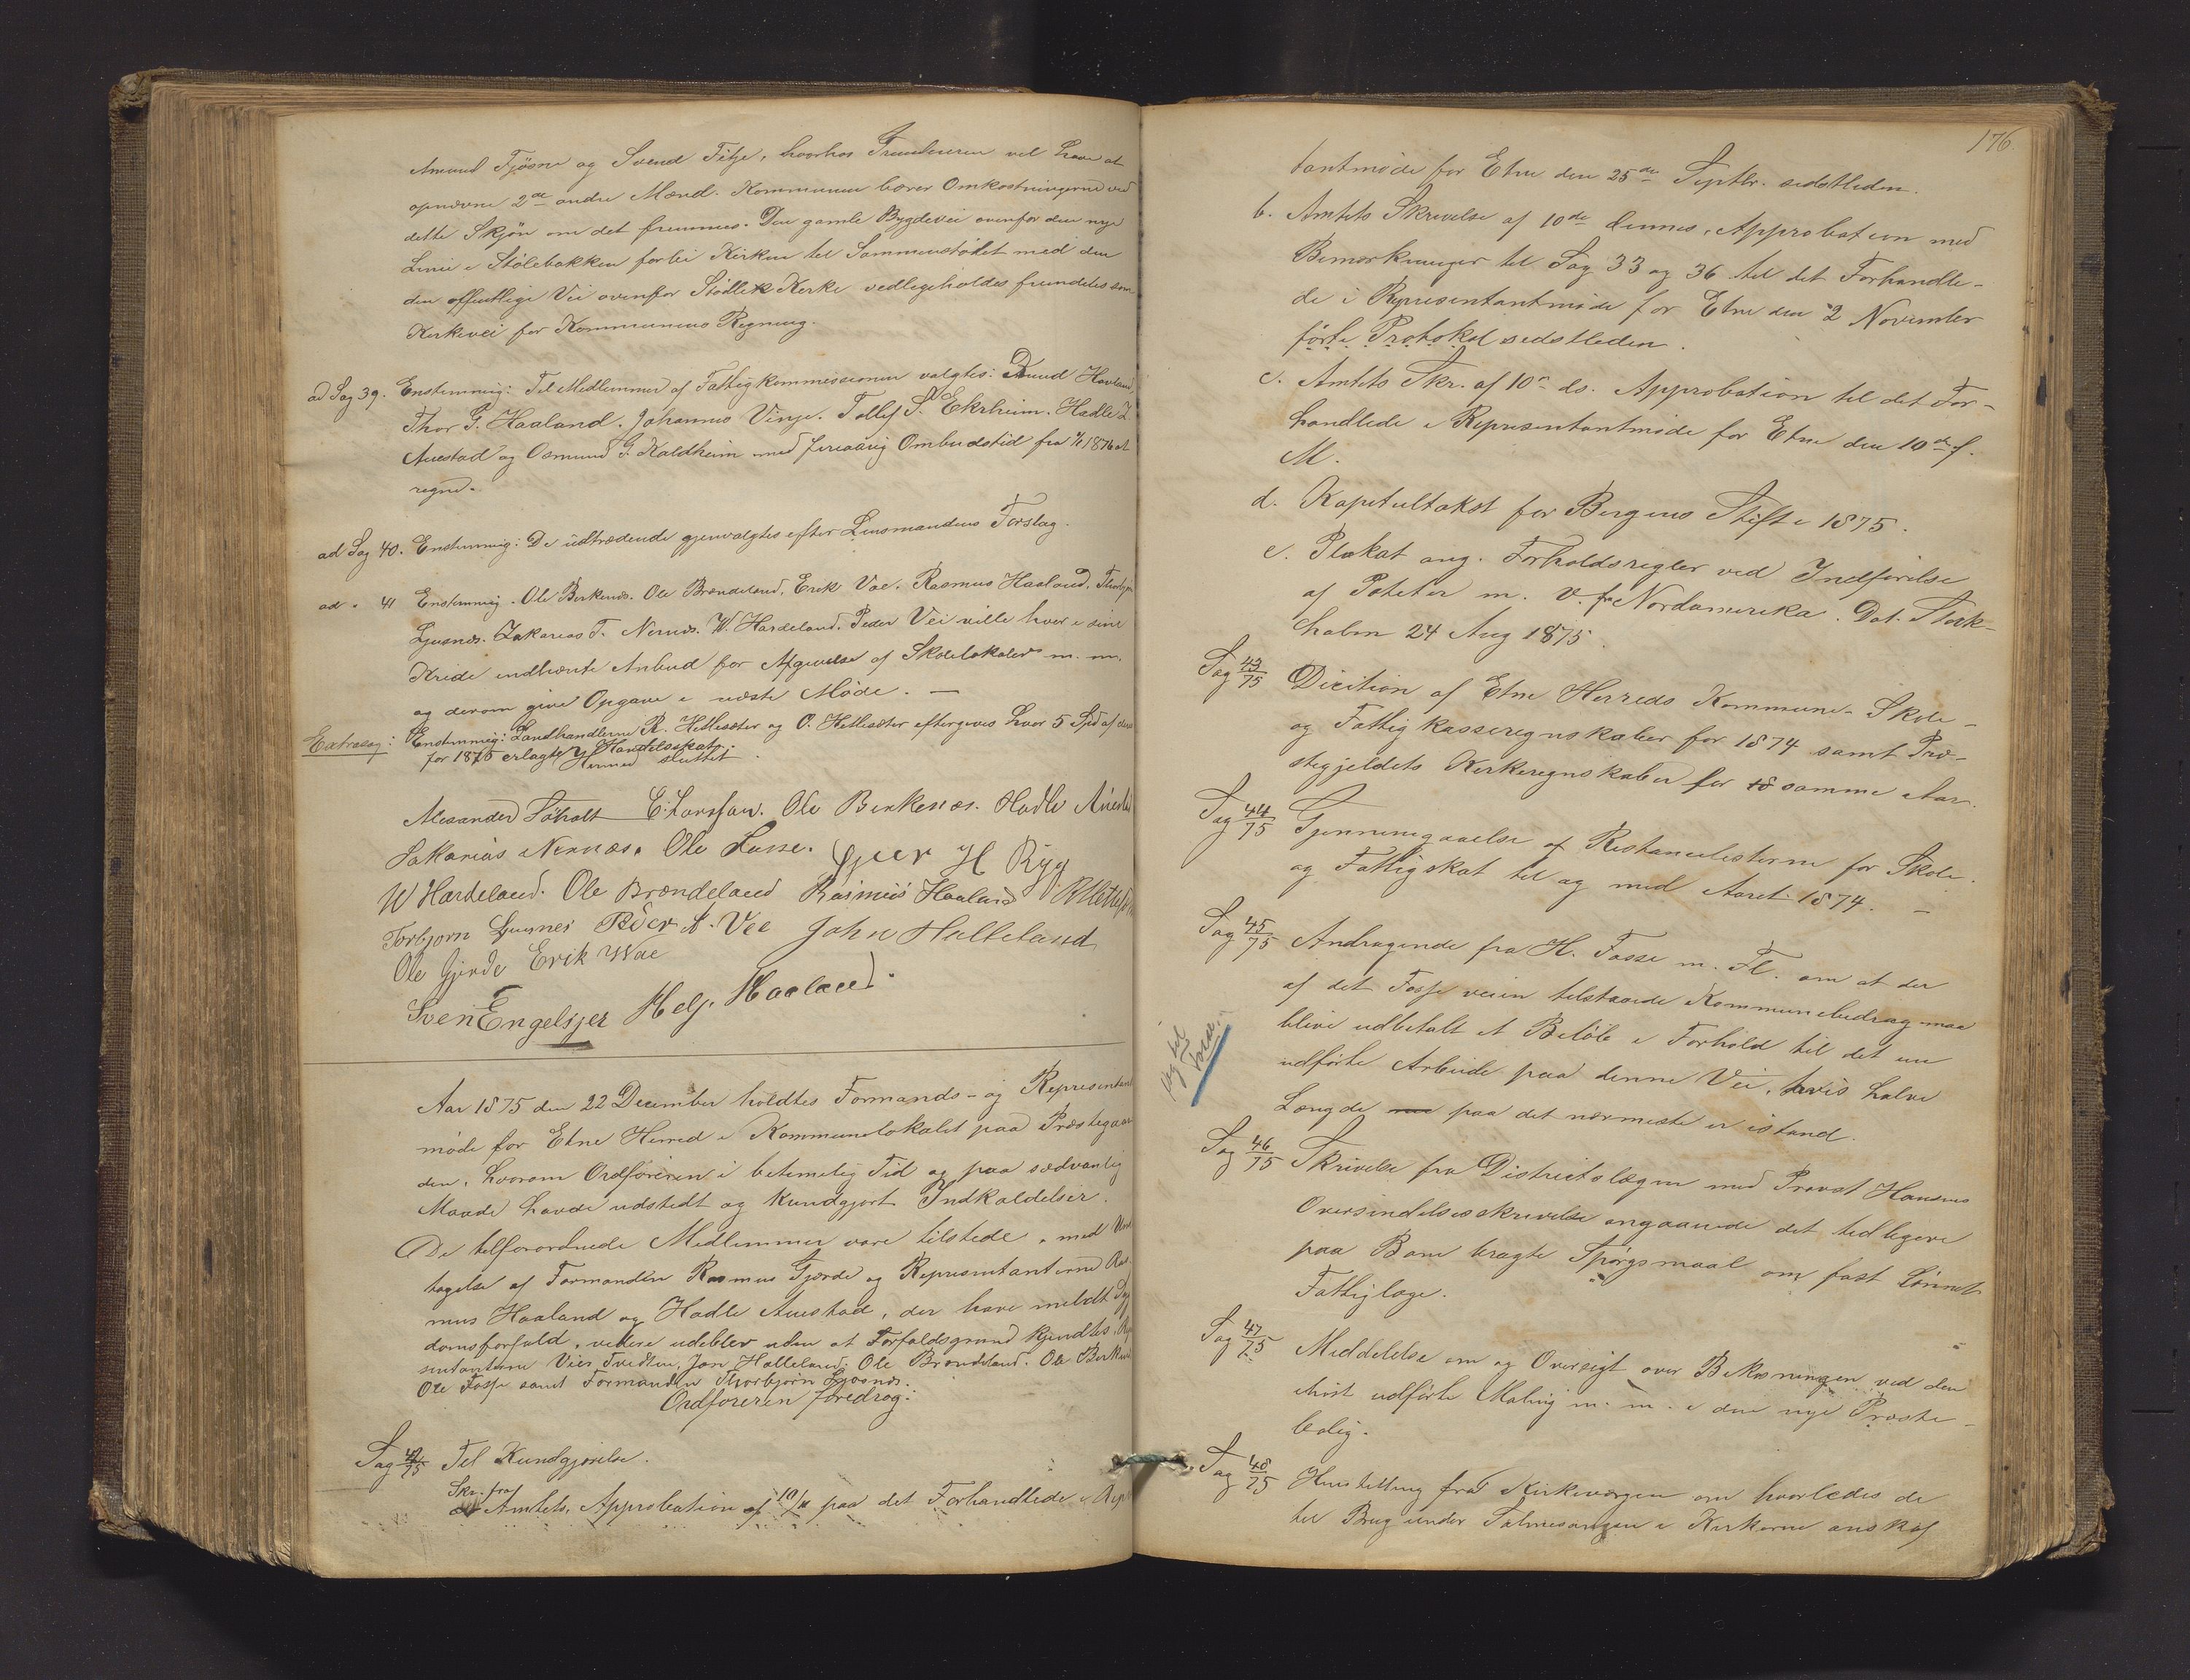 Amund Fjøsne og Svend Fitje, hvorhos Grundeieren vel have at
opnævne 2de andre Mænd. Kommunen bærer Omkostningerne ved
dette Skjøn om det fremmes. Den gamle Bygdevei ovenfor den nye
Linie i Stølebakken forbi Kirken til Sammenstødet med den
den offentlige Vei ovenfor Stødle Kirke vedligeholdes fremdeles som
Kirkevei for Kommunens Regning.
ad Sag 39. Enstemmig: Til Medlemmer af Fattigkommissionen valgtes: Knud Havland
Thor G. Haaland. Johannes Vinje. Tollef S. Ekrheim. Hadle
Auestad og Osmund G. Kaldheim med fireaarig Ombudstid fra 1/1 1876 at
regne.
ad Sag 40. Enstemmig: De udtrædende gjenvalgtes efter Lensmandens Forslag.
ad " 41 Enstemmig. Ole Birkenes. Ole Brændeland, Erik Vae. Rasmus Haaland. Thorbjørn
Ljusnes. Zakarias T. Nernes. W. Hardeland. Peder Vei ville hver i sine
Kride indhente Anbud for Afgivelse af Skolelokaler m. m.
og derom give Opgave i næste Møde. —
Extrasag: Enstemmig: Landhandlerne R. Hetlesæter og O. Hetlesæter eftergives hver 5 Spd af den
for 1875 erlagte Handelsskat.
Hermed sluttet.
Alexander Søholt E. Larssen. Ole Birkenæs. Hadle Auestad
Sakarias Nernæs. Ole Lusse. Gjeer H Rygg
W Hardeland. Ole Brændeland Rasmus Haaland
Torbjorn Ljusnes Peder A. Vee John Halleland
Ole Gjerde Erik Wae
Sven Engelsjer Helje Haaland.
Aar 1875 den 22 December holdtes Formands- og Representant
møde for Etne Herred i Kommunelokalet paa Præstegaar
den, hvorom Ordføreren i betimelig Tid og paa sædvanlig
Maade havde udstedt og kundgjort Indkaldelser.
De tilforordnede Medlemmer vare tilstede, med Und
tagelse af Formanden Rasmus Gjærde og Representanterne Ras
mus Haaland og Hadle Auestad, der have meldt Syg
domsforfald, videre udeblev uden at Forfaldsgrund kjendtes, Repr
sentanterne Vier Tvedten, Jon Halleland. Ole Brændeland. Ole Birkenes
Ole Fosse samt Formanden Thorbjørn Ljosnes.
Ordføreren foredrog:
Sag 42/75 Til Kundgjørelse.
Skr. fra
a Amtets, Approbation af 10/11 paa det Forhandlede i Repr
176
tantmøde for Etne den 25de Septbr. sidstleden.
b. Amtets Skrivelse af 10de dennes, Approbation med
Bemærkninger til Sag 33 og 36 til det Forhandle-
de i Representantmøde for Etne den 2 November
førte Protokol sidstleden.
c. Amtets Skr. af 10n ds. Approbation til det For-
handlede i Representantmøde for Etne den 10de f.
M.
d. Kapitultakst for Bergens Stift i 1875.
e. Plakat ang. Forholdsregler ved Indførelse
af Poteter m. v. fra Nordamerika. Dat. Stock-
holm 24 Aug 1875.
Sag 43/75 Dicition af Etne Herreds Kommune- Skole-
og Fattigkasseregnskaber for 1874 samt Præ-
stegjeldets Kirkeregnskaber for 18 samme Aar.
Sag 44/75 Gjennemgaaelse af Restancelisterne for Skole-
og Fattigskat til og med Aaret 1874. —
Sag 45/75 Andragende fra H. Fosse m. Fl. om at der
af det Fosse veien tilstaaede Kommunebidrag maa
blive udbetalt et Beløb i Forhold til det nu
udførte Arbeide paa denne Vei, hvis halve
Længde paa det nærmeste er istand.
Vej til
Fosse.
Sag 46/75 Skrivelse fra Districtslægen med Provst Hansens
Oversendelsesskrivelse angaaende det tidligere
paa Bane bragte Spørgsmaal om fast lønnet
Fattiglæge.
Sag 47/75 Meddelelse om og Oversigt over Bekosningen ved den
ihøst udførte Maling m. m. i den nye Præste-
bolig.
Sag 48/75 Henstilling fra Kirkeværgen om hvorledes de
til Brug under Salmesangen i Kirkerne anskaf